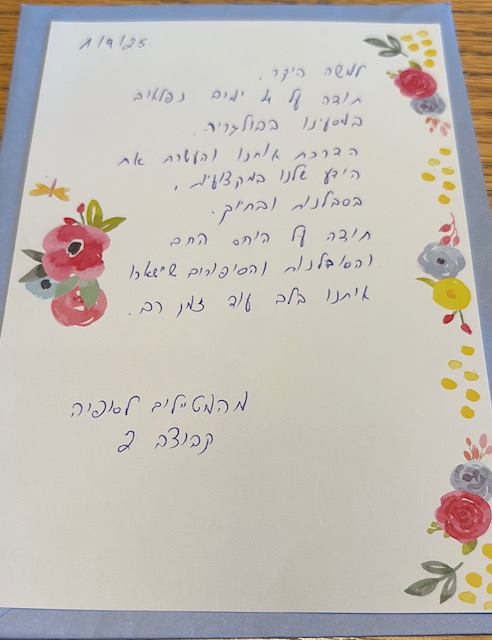 11/9/25
למשה היקר.
תודה על 4 ימים נפלאים
במסעינו בבולגריה.
הדרכת אותנו והעשרת את
הידע שלנו במקצועיות,
בסבלנות ובחיוך.
תודה על היחס החם
והסובלנות והסיפורים שישארו
איתנו בלב עוד זמן רב.
מהמטיילים לסופיה
קבוצה 2